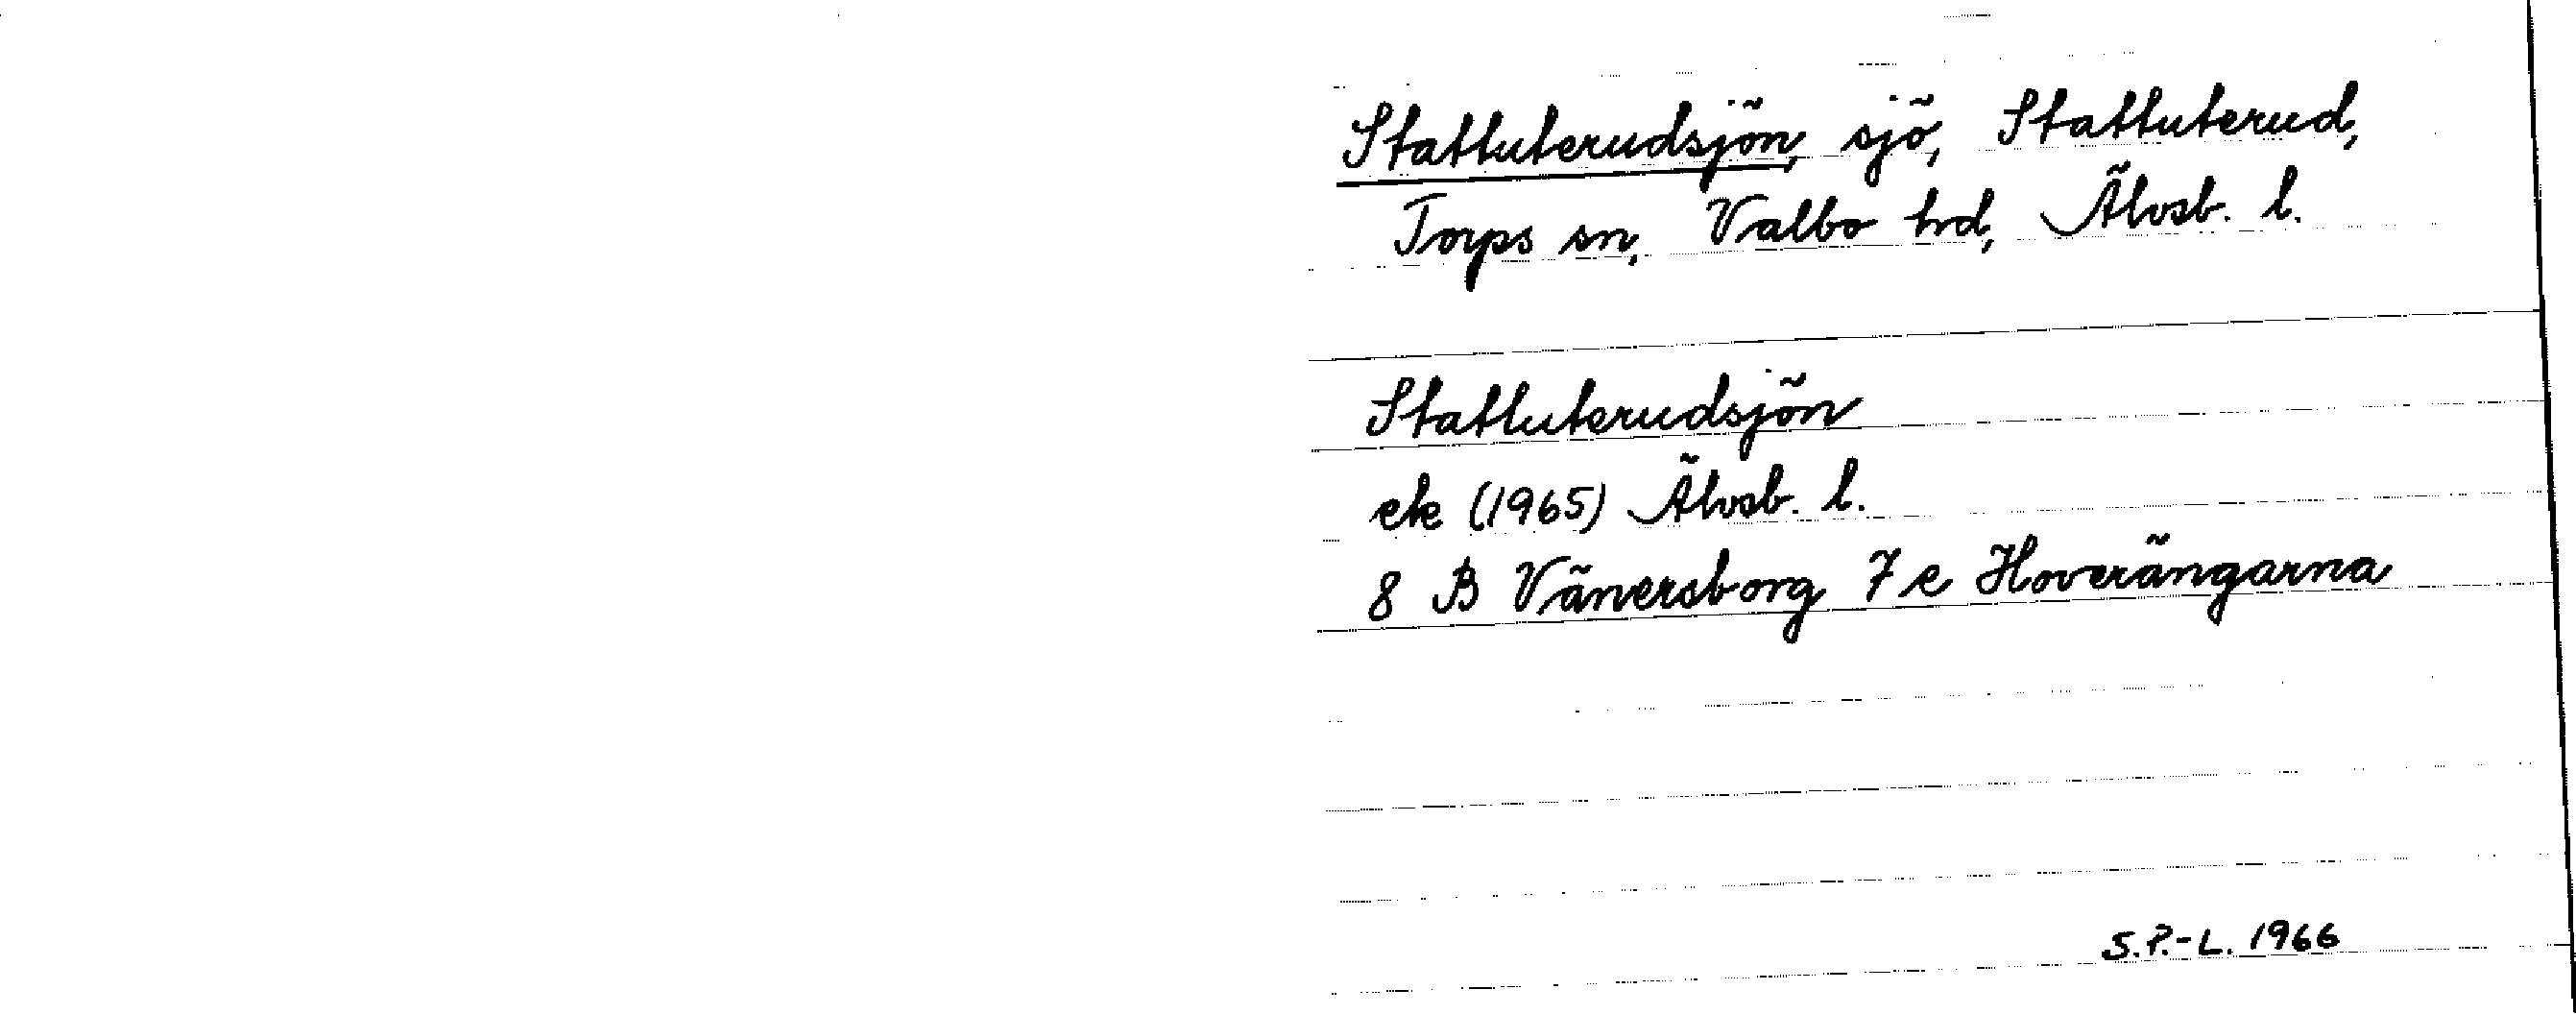 Stattuterudsjön, sjö, Stattuterud,
Torps sn, Valbo hd, Älvsb. l.
Stattuterudsjön
ek (1965) Älvsb. l.
8 B Vänersborg 7 e Hoverängarna
S.P.-L. 1966